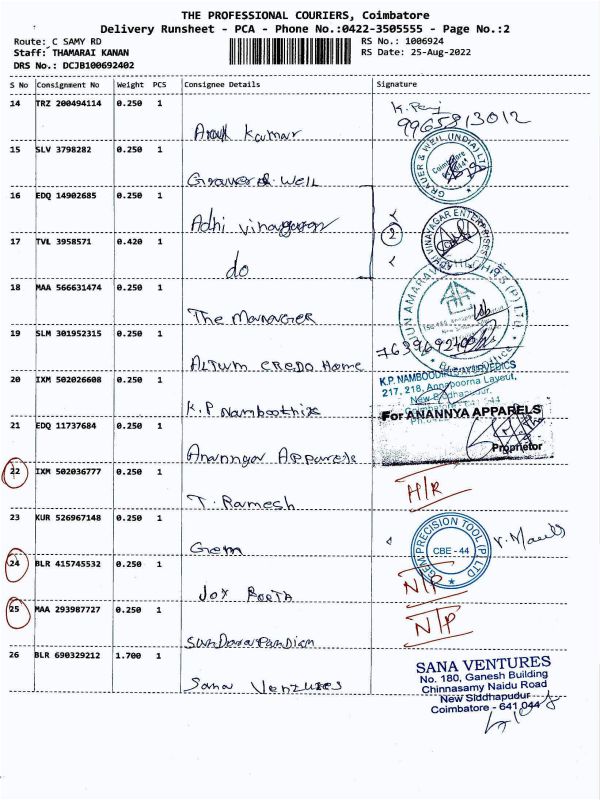 THE PROFESSIONAL COURIERS, Coimbatore
Delivery Runsheet - PCA - Phone No.:0422-3505555 - Page No.:2
Route: C SAMY RD
RS No.: 1006924
Staff: THAMARAI KANAN
RS Date: 25-Aug-2022
DRS No.: DCJB100692402
S No Consignment No Weight PCS Consignee Details Signature
14 TRZ 200494114 0.250 1
9965813012
Kumar
15 SLV 3798282 0.250 1
GRAUER & WEIL (INDIA) LTD
Coimbatore
Grauer & Weil
16 EDQ 14902685 0.250 1
Adhi
2
ADHI VINAYAGAR ENTERPRISES
17 TVL 3958571 0.420 1
do
18 MAA 566631474 0.250 1
The Manager
19 SLM 301952315 0.250 1
ALTUM CREDO Home
20 IXM 502026608 0.250 1
K.P. NAMBOODIRI'S AYURVEDICS
217, 218, Annapoorna Layout,
K.P Namboothiri
21 EDQ 11737684 0.250 1
For ANANNYA APPARELS
Proprietor
22 IXM 502036777 0.250 1
H/R
T. Ramesh
23 KUR 526967148 0.250 1
GEM PRECISION TOOL (P) LTD
CBE - 44
Gem
24 BLR 415745532 0.250 1
N/P
25 MAA 293987727 0.250 1
N/P
Sundarapandian
26 BLR 690329212 1.700 1
SANA VENTURES
No. 180, Ganesh Building
Chinnasamy Naidu Road
New Siddhapudur
Coimbatore - 641 044
Sana Ventures